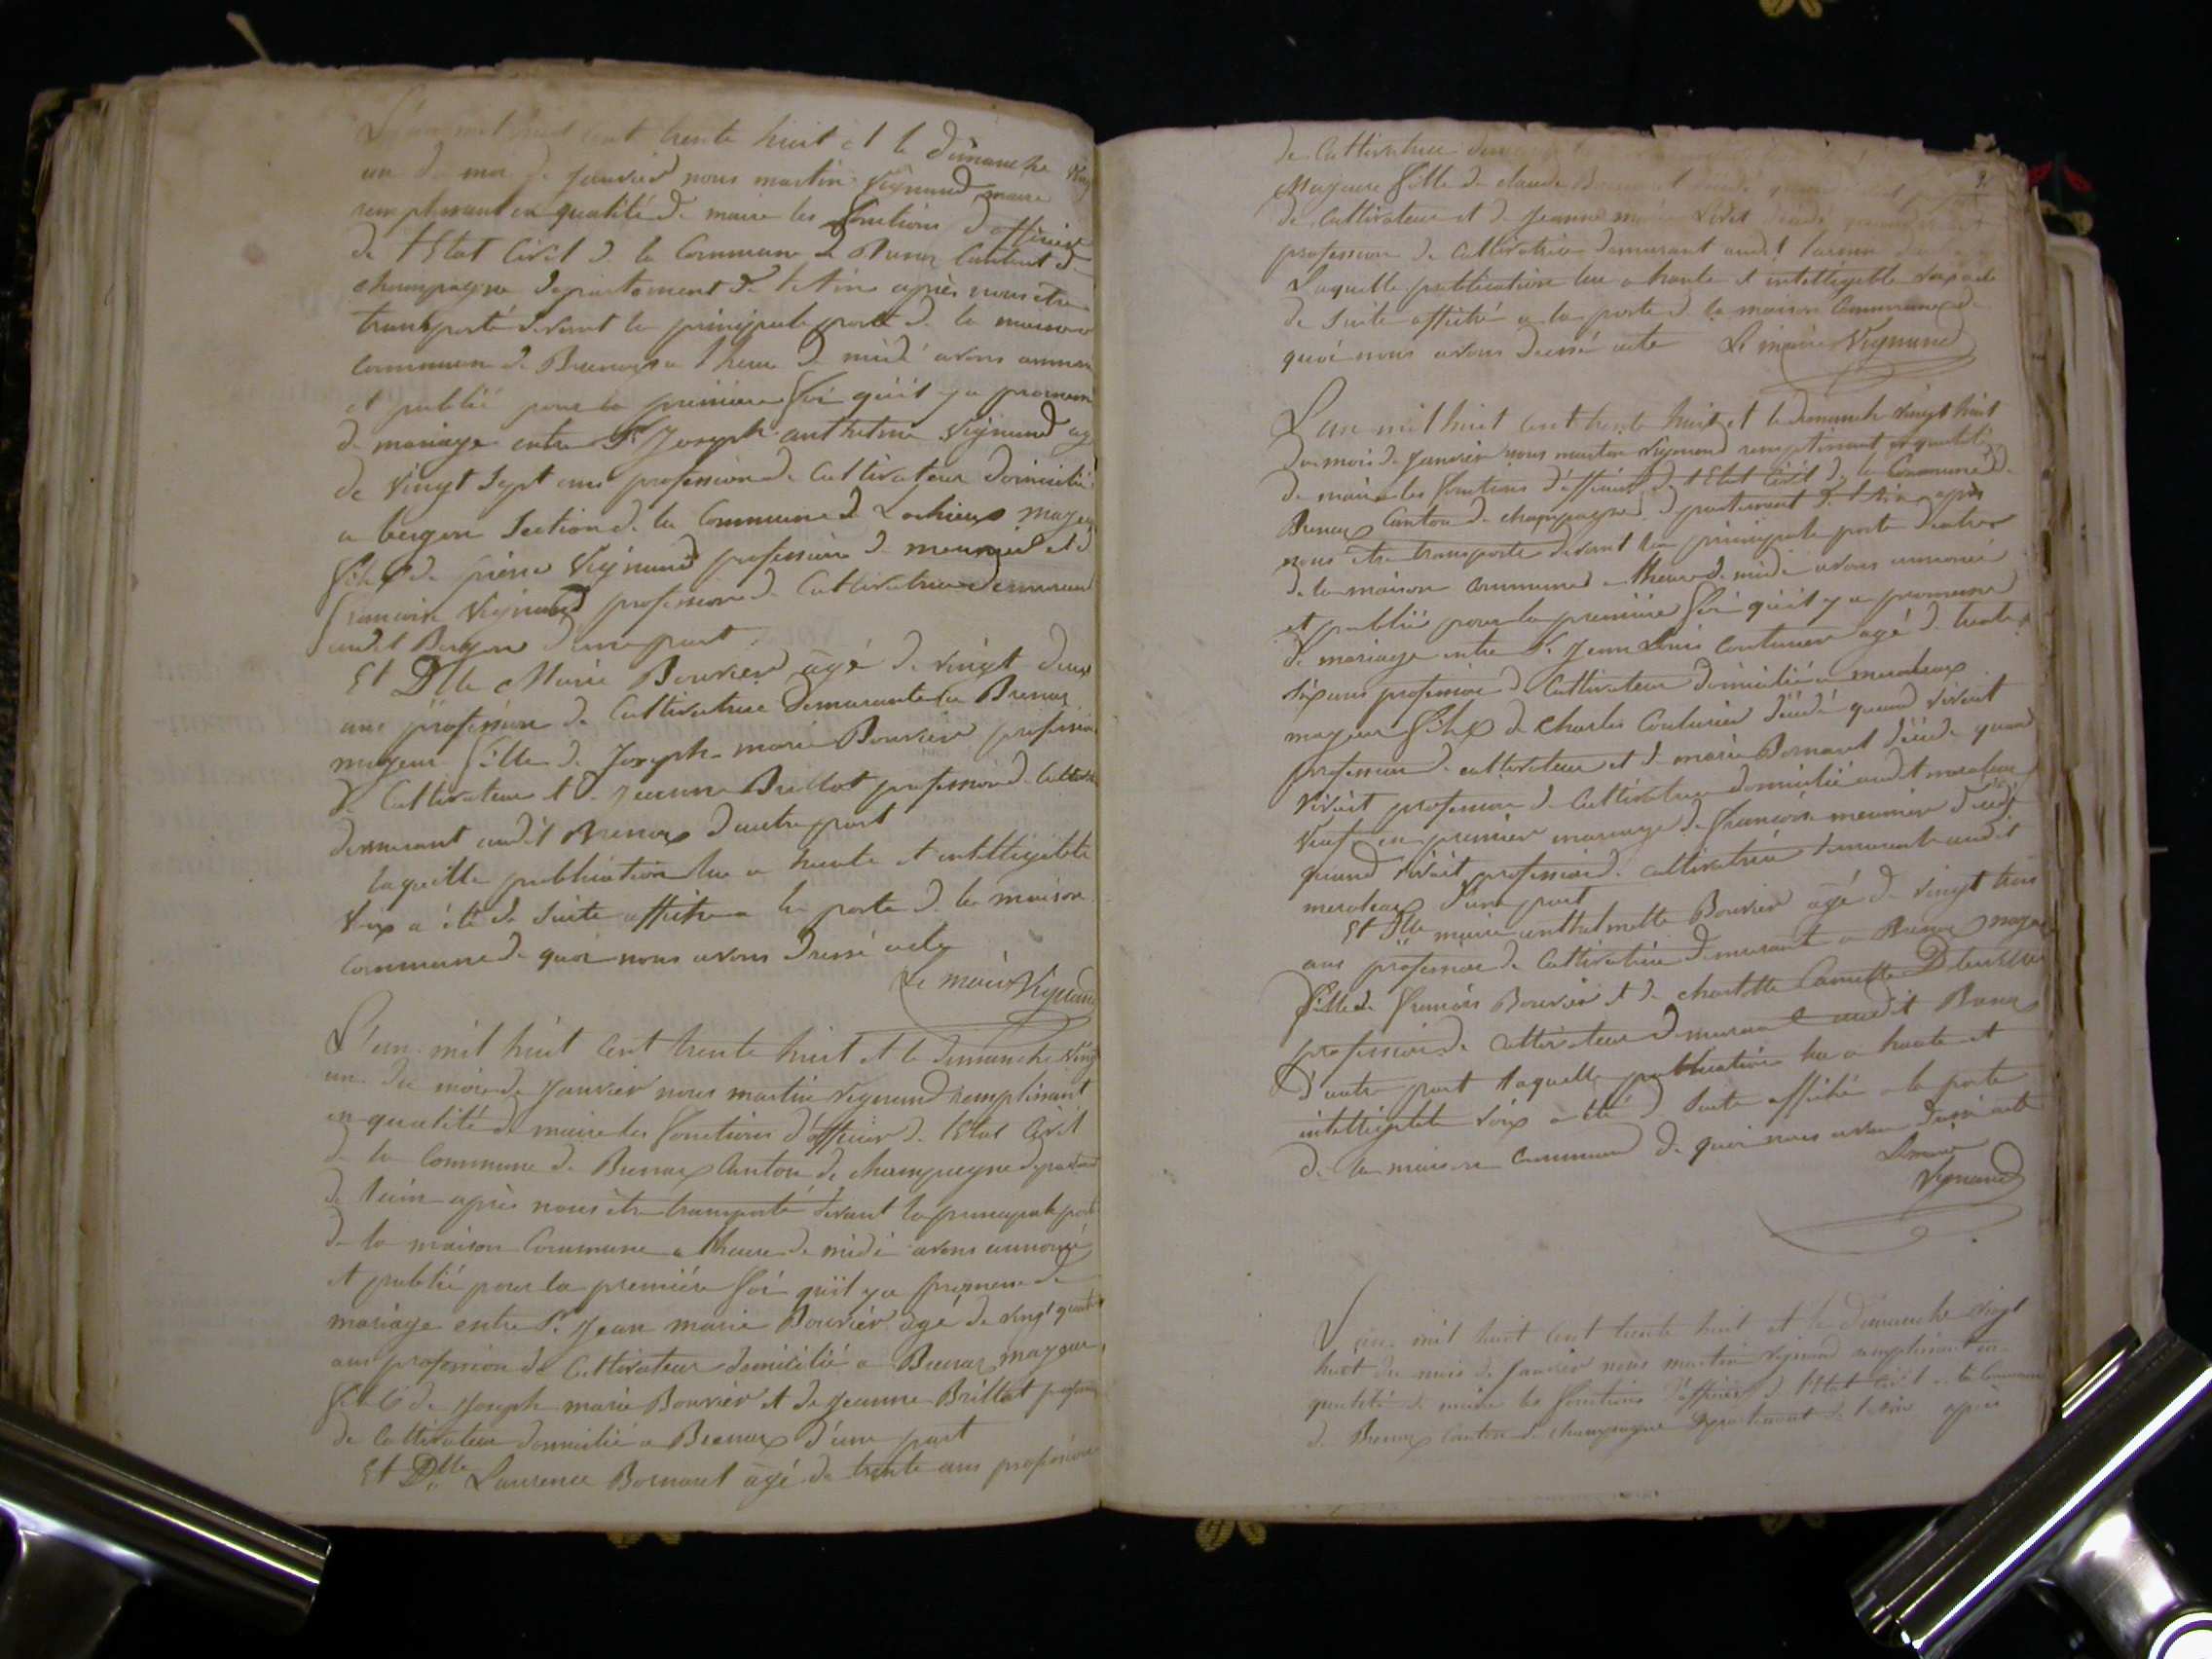 L'an mil huit cent trente huit et le dimanche vingt
un du mois de Janvier nous martin Vignand maire
remplissant en qualité de maire les fonctions d'officier
de l'Etat Civil de la Commune de Brenaz Canton de
champagne departement de l'Ain après nous être
transporté devant la principale porte de la maison
commune de Brenaz a l'heure de midi avons annoncé
et publié pour la première foi qu'il y a promesse
de mariage entre Sr Joseph anthelme Vignand agé
de vingt sept ans profession de Cultivateur domicilié
a bergon Section de la Commune de Lochieux mayeur
fils de pierre Vignand profession de meunier et de
francoise Vignand profession de Cultivatrice demeurant
audit Bergon d'une part
Et Dlle Marie Bouvier agé de vingt deux
ans profession de Cultivatrice demeurante a Brenaz
mayeur fille de Joseph marie Bouvier profession
de Cultivateur et de jeanne Brillat profession de Cultivatrice
demeurant audit Brenaz d'autre part
laquelle publication lue a haute et intelligible
voix a été de suite affiché a la porte de la maison
commune de quoi nous avons dressé acte
Le maire Vignand
L'an mil huit cent trente huit et le dimanche vingt
un du mois de Janvier nous martin vignand remplissant
en qualité de maire les fonctions d'officier de l'Etat Civil
de la Commune de Brenaz Canton de champagne departement
de l'ain après nous être transporté devant la principale porte
de la maison Commune a l'heure de midi avons annoncé
et publié pour la première foi qu'il y a promesse de
mariage entre Sr Jean marie Bouvier agé de vingt quatre
ans profession de Cultivateur domicilié a Brenaz mayeur
fils de Joseph marie Bouvier et de Jeanne Brillat profession
de Cultivateur domicilié a Brenaz d'une part
Et Dlle Laurence Bornant agé de trente ans profession
2
de Cultivatrice
Mayeure fille de claude
de Cultivateur et de Jeanne
profession de Cultivatrice demeurant audit
Laquelle publication lue a haute et intelligible voix a été
de suite affiché a la porte de la maison Commune de
quoi nous avons dressé acte Le maire Vignand
L'an mil huit cent trente huit et le dimanche vingt huit
du mois de Janvier nous martin vignand remplissant en qualité
de maire les fonctions d'officier de l'Etat Civil de la Commune de
Brenaz Canton de champagne departement de l'Ain après
nous être transporté devant la principale porte d'entrée
de la maison commune a l'heure de midi avons annoncé
et publié pour la première foi qu'il y a promesse
de mariage entre Sr Jean Louis Couturier agé de trente
six ans profession de Cultivateur domicilié a meraleaz
mayeur fils de Charles Couturier décédé quand vivait
profession de cultivateur et de marie Bornant décédé quand
vivait profession de Cultivatrice domicilié audit meraleaz
veuf en premier mariage de francoise meunier décédé
quand vivait profession de cultivatrice demeurante audit
meraleaz d'une part
Et Dlle marie anthelmette Bouvier agé de vingt trois
ans profession de Cultivatrice demeurant a Brenaz mayeure
fille de francois Bouvier et de charlotte Camille
profession de cultivateur demeurant audit Brenaz
d'autre part laquelle publication lue a haute et
intelligible voix a été de suite affiché a la porte
de la maison commune de quoi nous avons dressé acte
Le maire
Vignand
L'an mil huit cent trente huit et le dimanche vingt
huit du mois de Janvier nous martin vignand remplissant en
qualité de maire les fonctions d'officier de l'Etat civil de la Commune
de Brenaz Canton de champagne departement de l'ain après